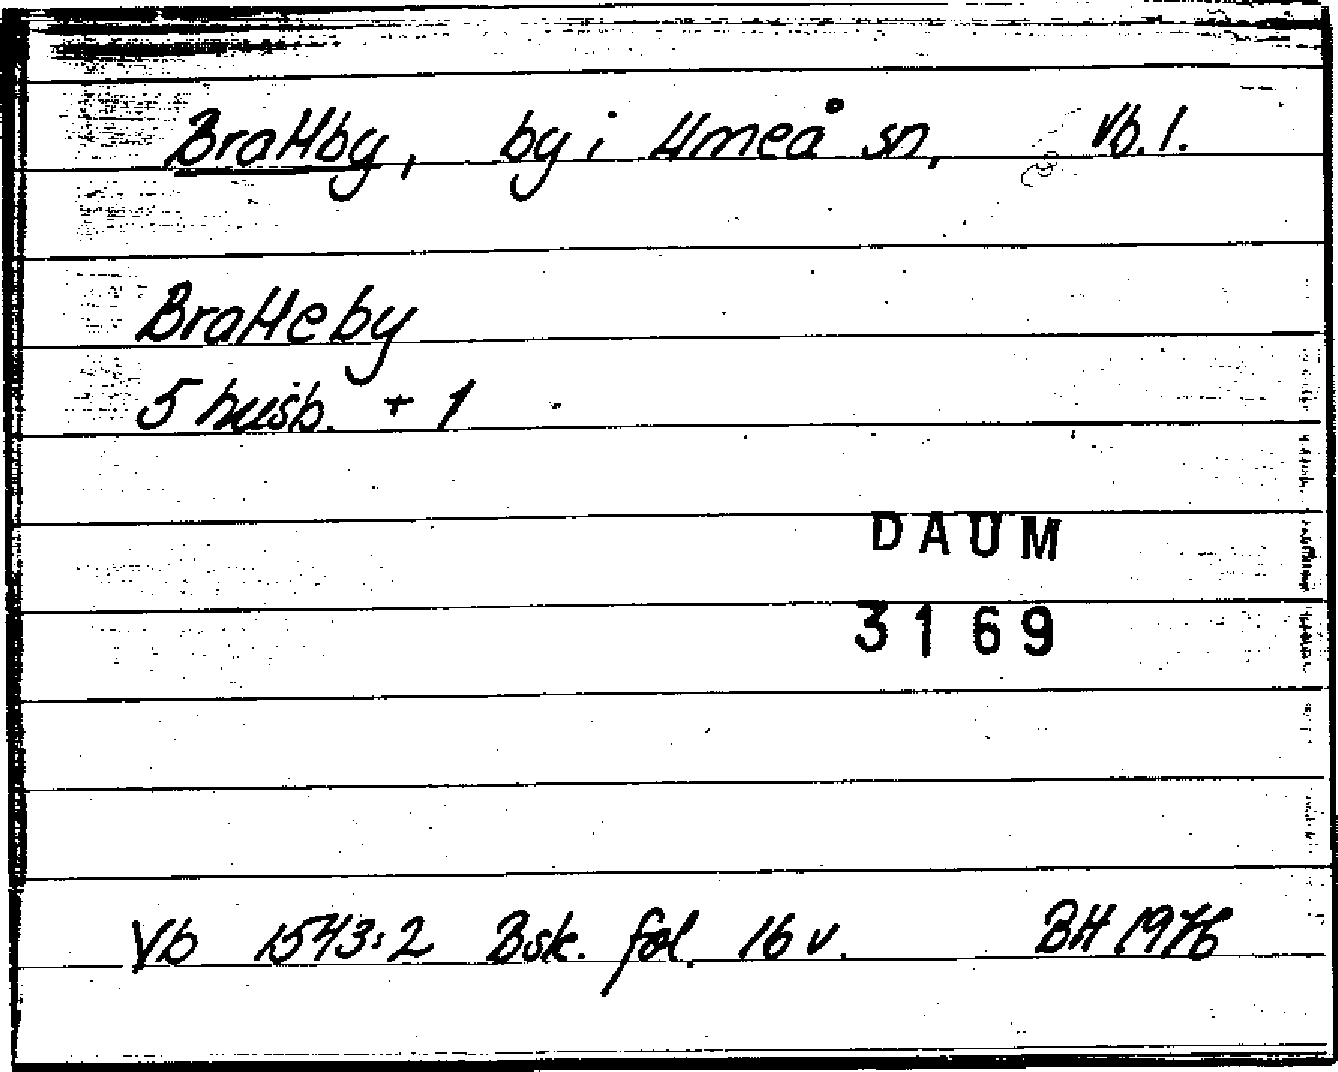 Brattby, by i Umeå sn, Vb. l.
Bratteby
5 husb. + 1
DAUM
3169
Vb 1543:2 Bsk. fol. 16 v. BH 1976